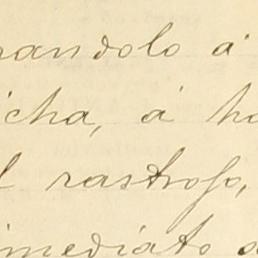 randolo á
icha, á ha
l rastrojo,
imediato a